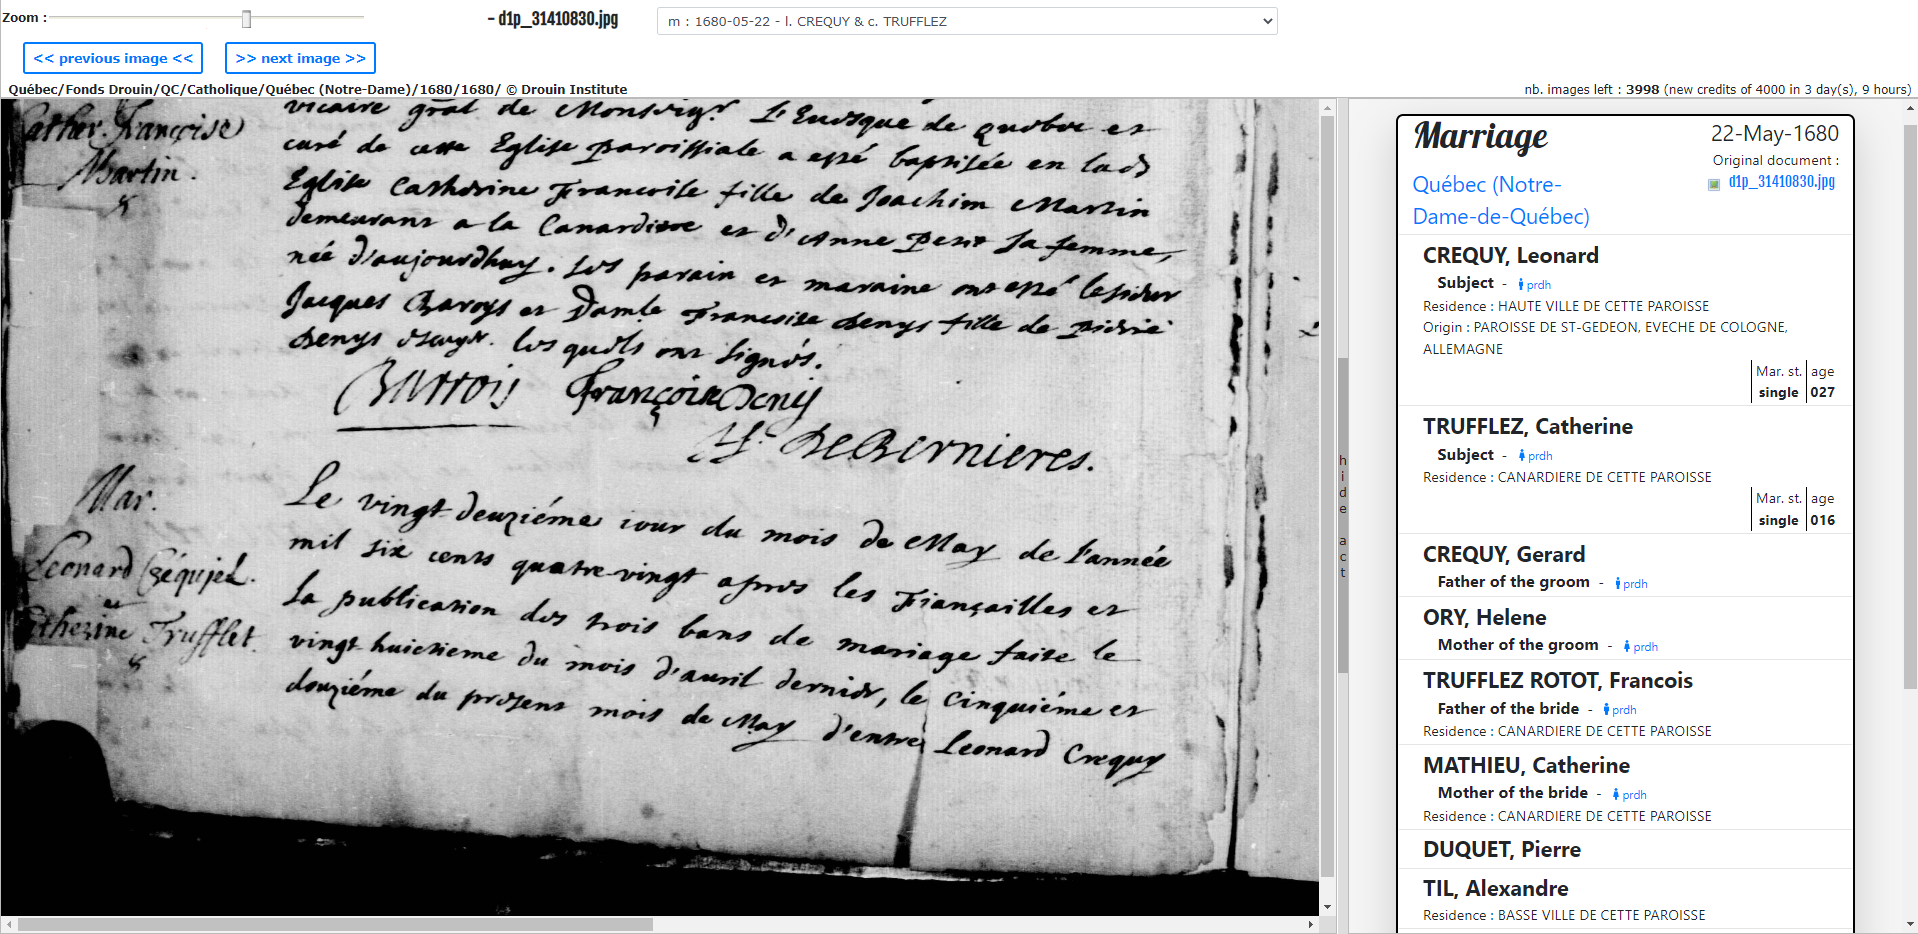 Zoom :
– d1p_31410830.jpg
m : 1680-05-22 - l. CREQUY & c. TRUFFLEZ
<< previous image <<
>> next image >>
Québec/Fonds Drouin/QC/Catholique/Québec (Notre-Dame)/1680/1680/ © Drouin Institute
nb. images left : 3998 (new credits of 4000 in 3 day(s), 9 hours)
Cather. françoise
Martin.
vicaire gñal de Monseigr. L'Euesque de Quebec et
curé de cette Eglise paroissiale a esté baptisée en lad
Eglise Catherine Francoise fille de Joachim Martin
demeurant a la Canardiere et d'Anne petit sa femme,
née d'aujourdhuy. Les parain et maraine ont esté le sieur
Jacques Baroys et Damle Francoise denys fille de pierre
denys escuyr. lesquels ont signés.
Barrois Françoise Denis
H. De Bernieres.
Mar.
Leonard Créquy
et
Catherine Trufflet.
Le vingt-deuziéme iour du mois de May de l'année
mil six cents quatre-vingt apres les Fiançailles et
La publication des trois bans de mariage faite le
vingt-huictieme du mois d'auril dernier, le cinquiéme et
douziéme du present mois de May d'entre Leonard Crequy
hide act
Marriage
22-May-1680
Original document :
d1p_31410830.jpg
Québec (Notre-
Dame-de-Québec)
CREQUY, Leonard
Subject - prdh
Residence : HAUTE VILLE DE CETTE PAROISSE
Origin : PAROISSE DE ST-GEDEON, EVECHE DE COLOGNE,
ALLEMAGNE
Mar. st. age
single 027
TRUFFLEZ, Catherine
Subject - prdh
Residence : CANARDIERE DE CETTE PAROISSE
Mar. st. age
single 016
CREQUY, Gerard
Father of the groom - prdh
ORY, Helene
Mother of the groom - prdh
TRUFFLEZ ROTOT, Francois
Father of the bride - prdh
Residence : CANARDIERE DE CETTE PAROISSE
MATHIEU, Catherine
Mother of the bride - prdh
Residence : CANARDIERE DE CETTE PAROISSE
DUQUET, Pierre
TIL, Alexandre
Residence : BASSE VILLE DE CETTE PAROISSE